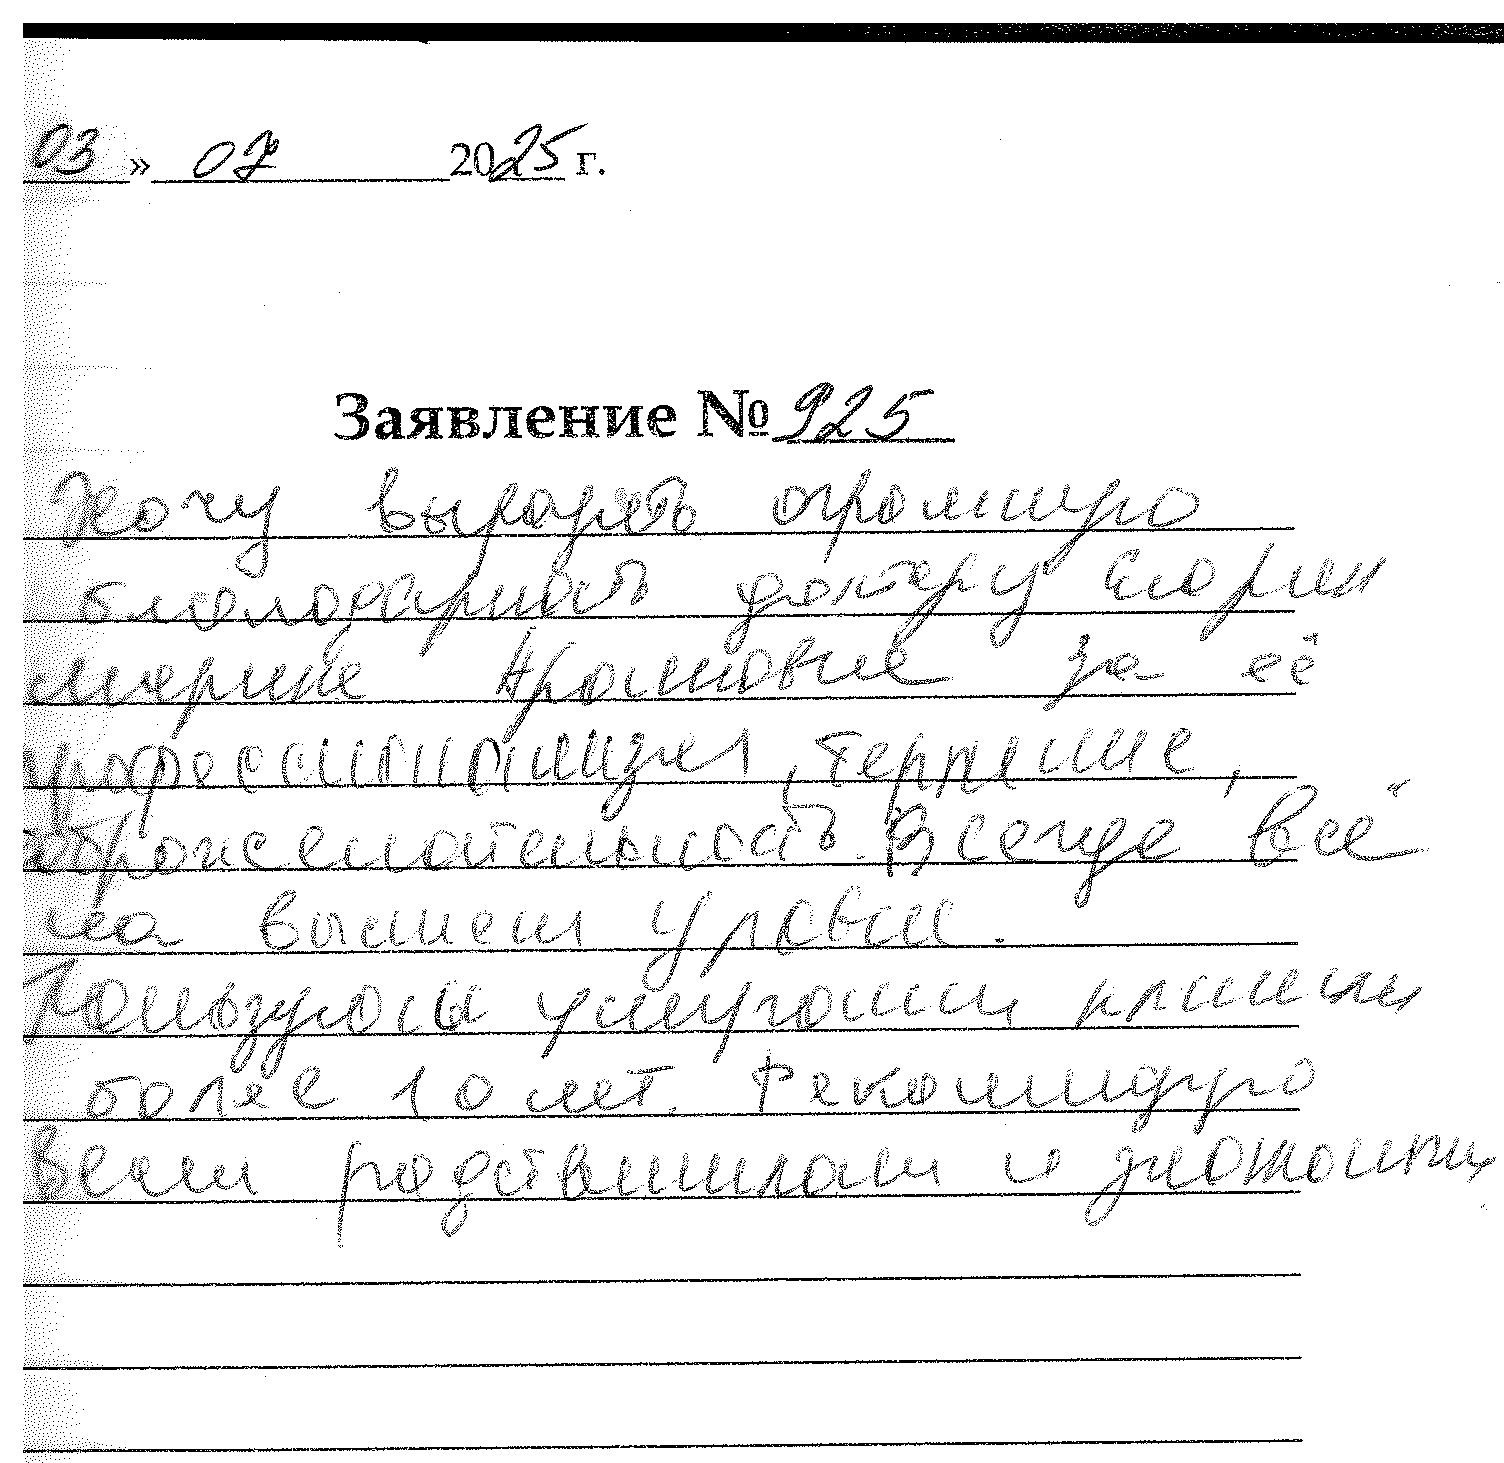 03 » 07 2025 г.
Заявление № 925
Хочу выразить огромную
благодарность доктору
Марине за её
профессионализм, терпение,
доброжелательность. Всегда всё
на высшем уровне.
Пользуюсь услугами клиники
более 10 лет. Рекомендую
всем родственникам и знакомым